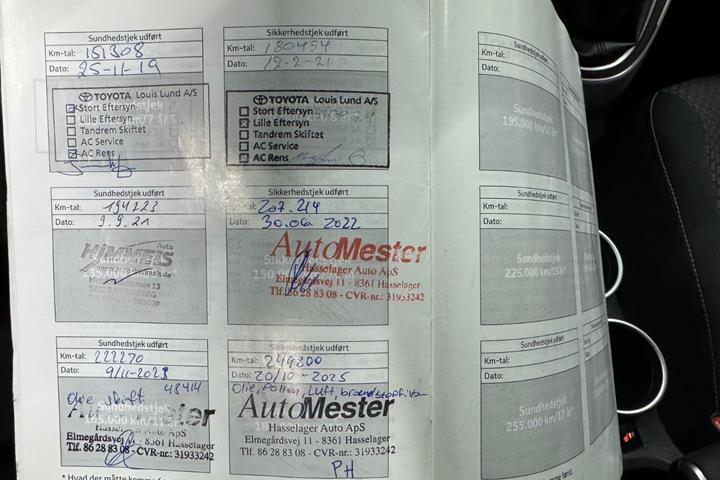 Sundhedstjek udført
Km-tal: 151308
Dato: 25-11-19
TOYOTA Louis Lund A/S
Stort Eftersyn
Lille Eftersyn
Tandrem Skiftet
AC Service
AC Rens
Sikkerhedstjek udført
Km-tal: 180454
Dato: 12-2-21
TOYOTA Louis Lund A/S
Stort Eftersyn
Lille Eftersyn
Tandrem Skiftet
AC Service
AC Rens
Sundhedstjek udført
Km-tal:
Dato:
Sundhedstjek
195.000 km/13 år*
Sundhedstjek udført
Km-tal: 194223
Dato: 9.9.21
HIMMELS Auto
Sikkerhedstjek udført
207.214
Dato: 30.06 2022
AutoMester
Hasselager Auto ApS
Elmegårdsvej 11 - 8361 Hasselager
Tlf. 86 28 83 08 - CVR-nr.: 31933242
Sundhedstjek udført
Km-tal:
Dato:
Sundhedstjek
225.000 km/15 år*
Sundhedstjek udført
Km-tal: 222270
Dato: 9/11-2023
Olie skift
AutoMester
Hasselager Auto ApS
Elmegårdsvej 11 - 8361 Hasselager
Tlf. 86 28 83 08 - CVR-nr.: 31933242
Sikkerhedstjek udført
Km-tal: 249800
Dato: 20/10-2025
Olie, Pollen, Luft, brændstoffilter
AutoMester
Hasselager Auto ApS
Elmegårdsvej 11 - 8361 Hasselager
Tlf. 86 28 83 08 - CVR-nr.: 31933242
PH
Sundhedstjek udført
Km-tal:
Dato:
Sundhedstjek
255.000 km/17 år*
* Hvad der måtte komme først.